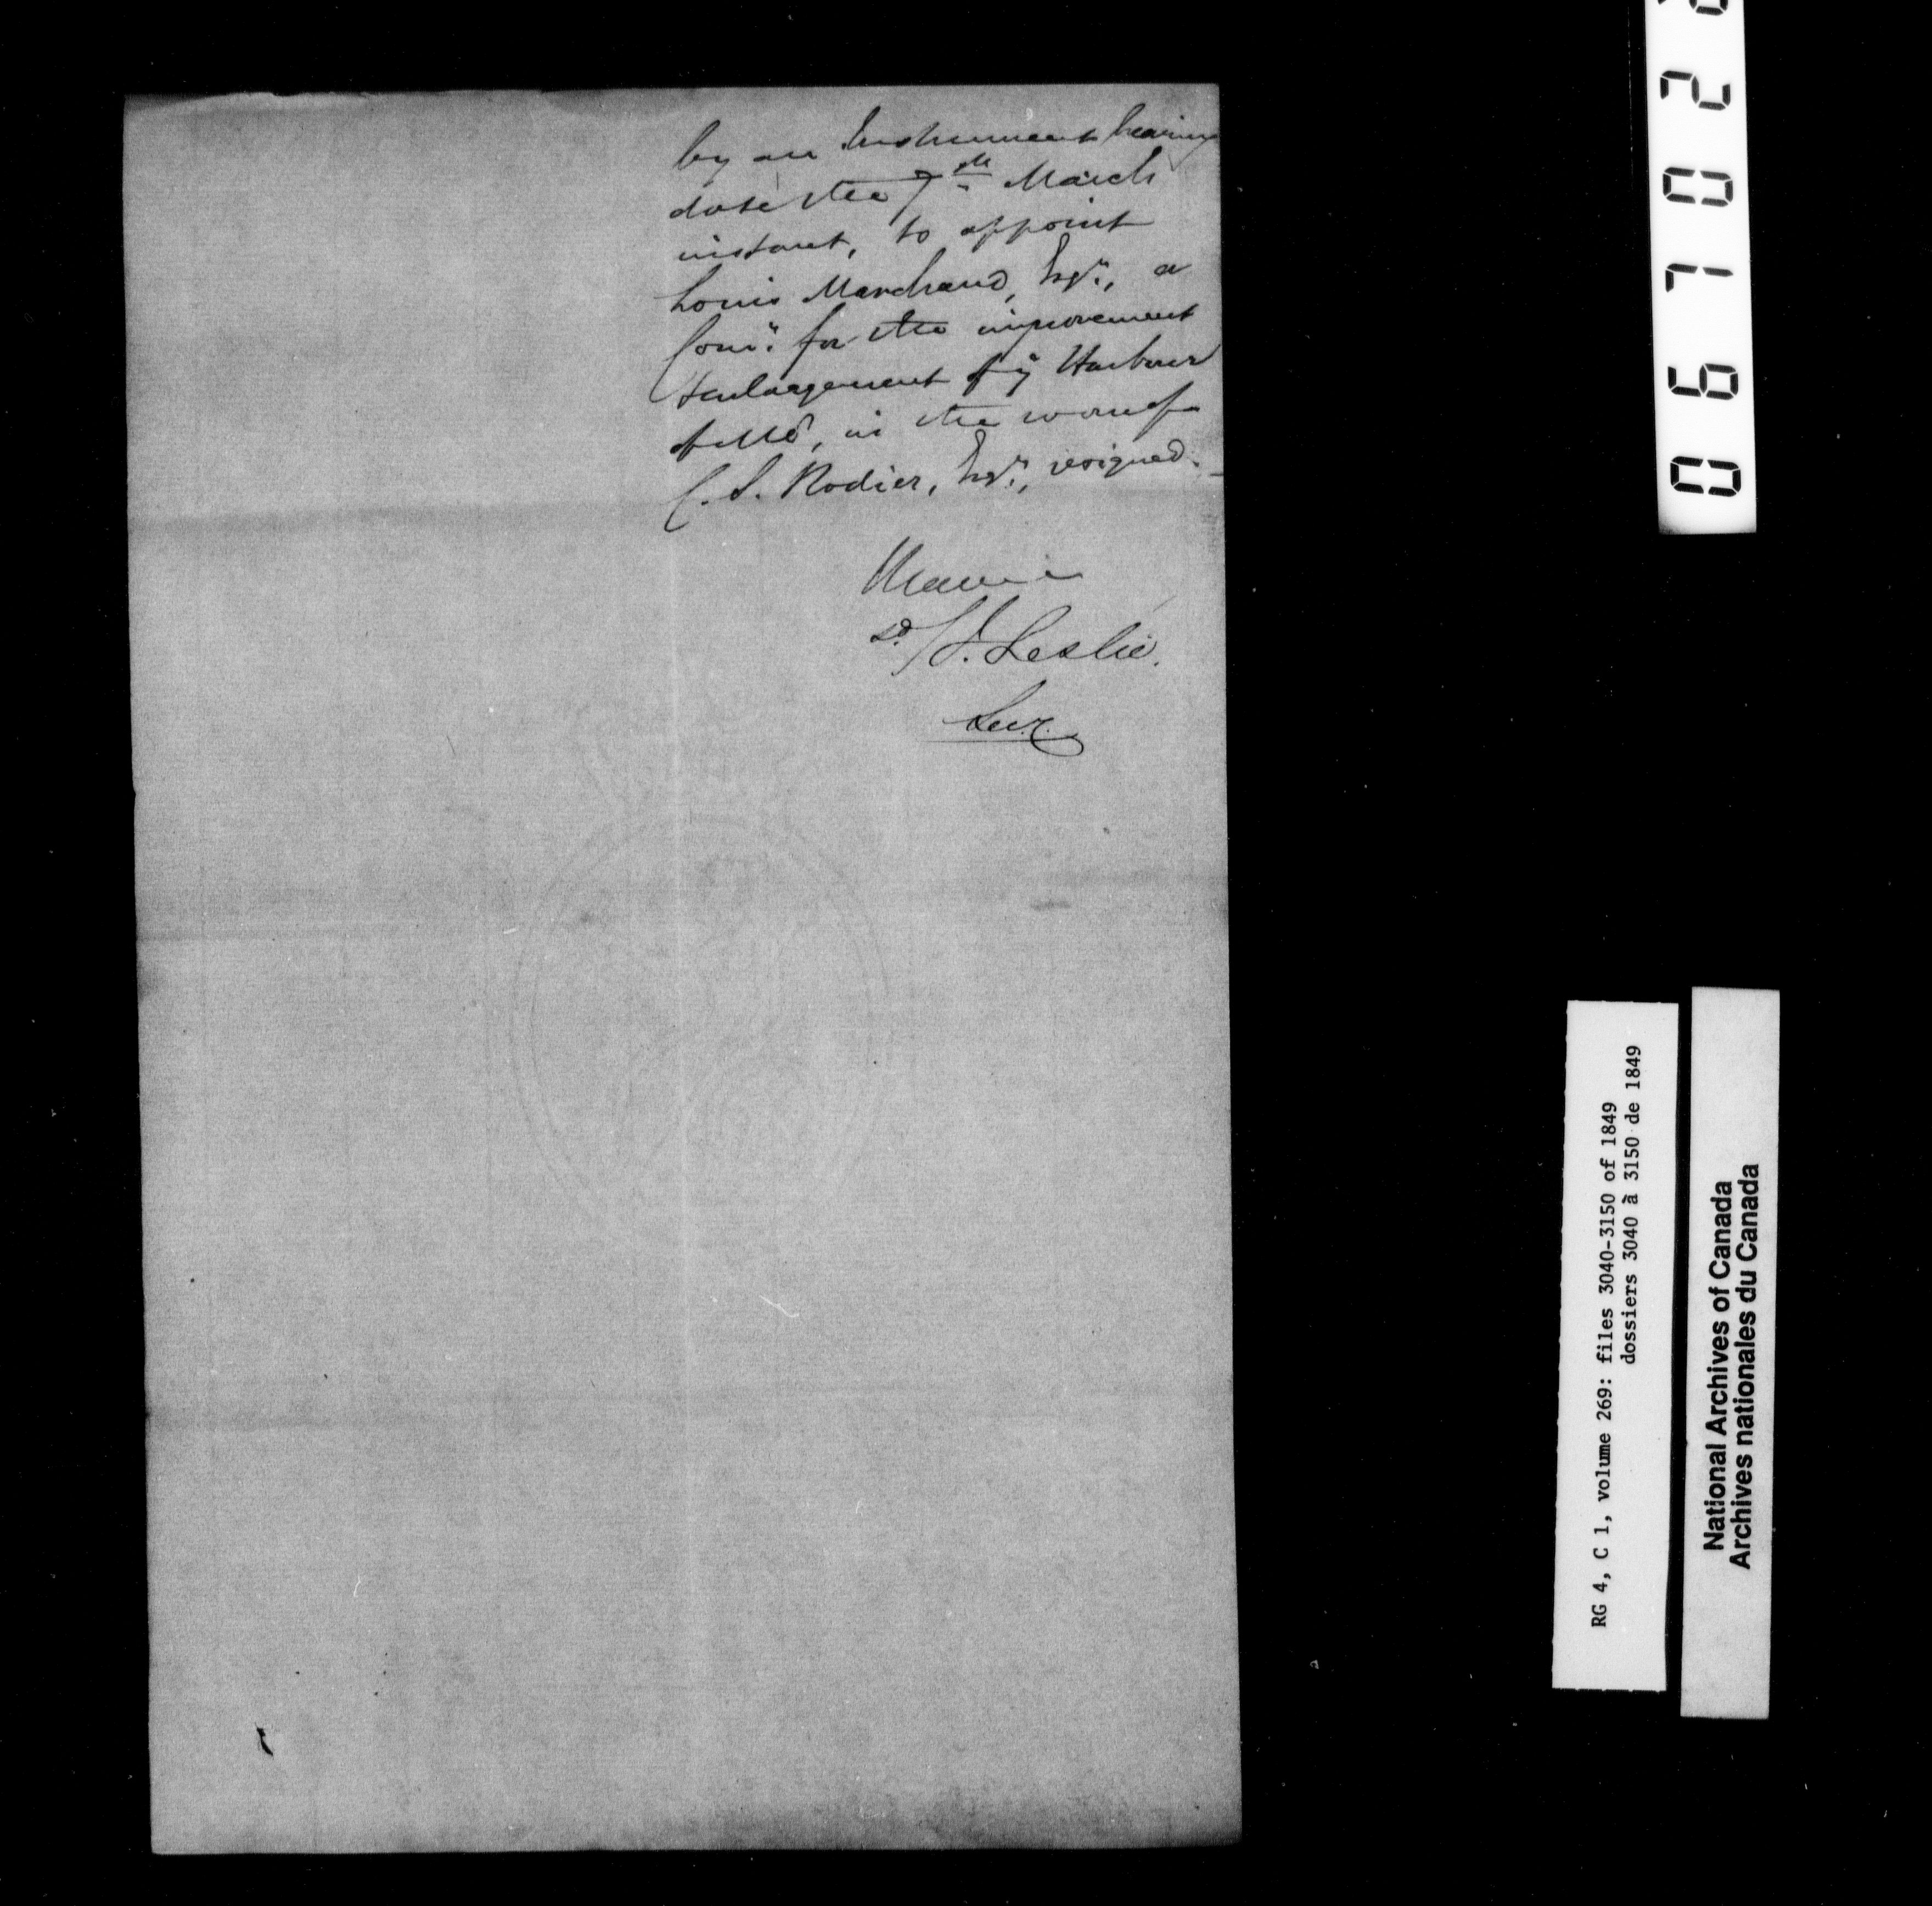 by an Instrument bearing
date the 7th March
instant, to appoint
Louis Marchand, Esqr., a
Comr. for the improvement
& enlargement of ye Harbour
of Mtl, in the room of
C. S. Rodier, Esqr., resigned.
I have &c
sd. / J. Leslie.
Secy.
0 6 7 0 2
RG 4, C 1, volume 269: files 3040-3150 of 1849
dossiers 3040 à 3150 de 1849
National Archives of Canada
Archives nationales du Canada